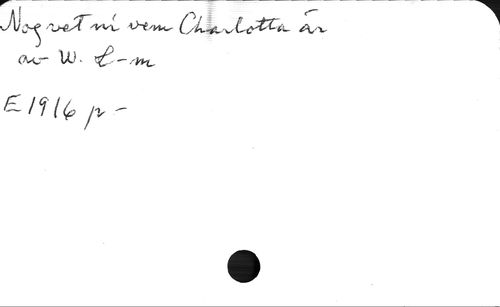 Nog vet ni vem Charlotta är
av W. L-m
E 1916 p -